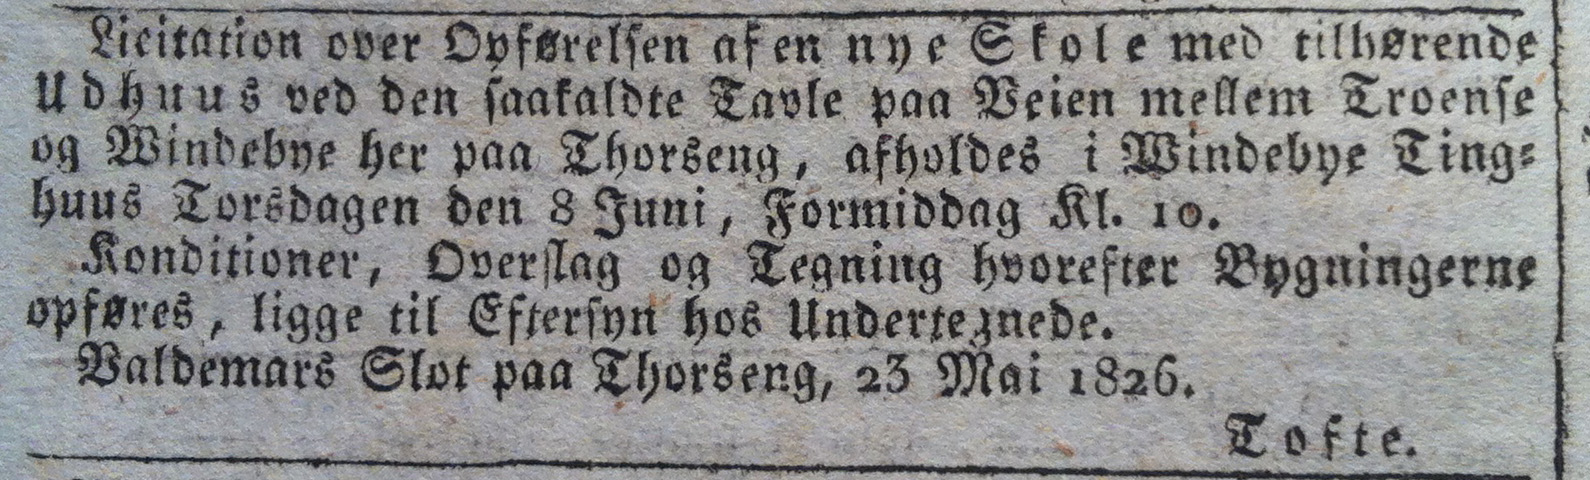 Licitation over Opførelsen af en nye Skole med tilhørende
Udhuus ved den saakaldte Tavle paa Veien mellem Troense
og Windebye her paa Thorseng, afholdes i Windebye Ting-
huus Torsdagen den 8 Juni, Formiddag Kl. 10.
Konditioner, Overslag og Tegning hvorefter Bygningerne
opføres, ligge til Eftersyn hos Undertegnede.
Valdemars Slot paa Thorseng, 23 Mai 1826.
Tofte.